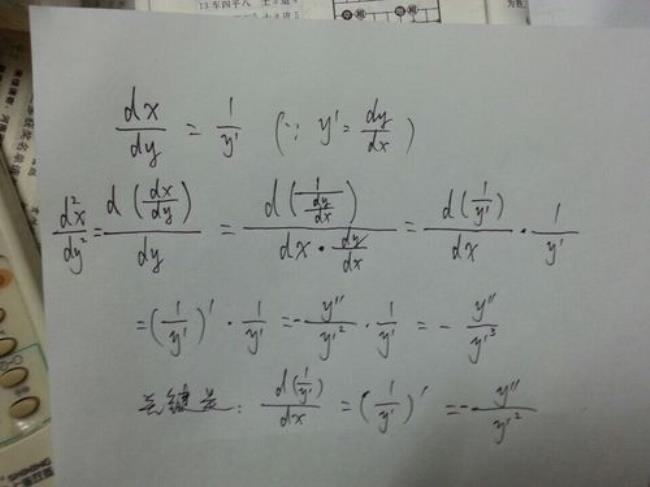 13.车四平八 士5进4
dx/dy = 1/y' (∵ y' = dy/dx)
d²x/dy² = d(dx/dy)/dy = d(1/(dy/dx))/(dx · dy/dx) = d(1/y')/dx · 1/y'
= (1/y')' · 1/y' = -y''/y'² · 1/y' = - y''/y'³
关键是: d(1/y')/dx = (1/y')' = -y''/y'²